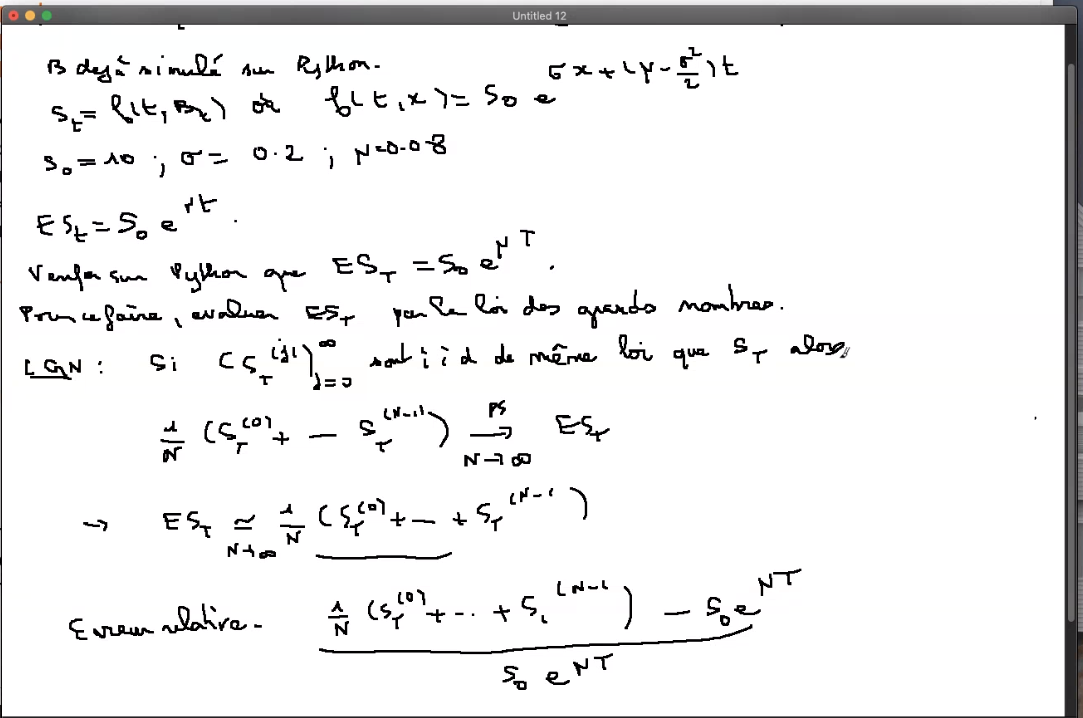 Untitled 12
B dejà simulé sur Python.
S_t = f(t, B_t) où f(t, x) = S_0 e^{σx + (μ - σ²/2)t}
S_0 = 10 ; σ = 0.2 ; μ = 0.08
E S_t = S_0 e^{μt}.
Verifier sur Python que E S_T = S_0 e^{μT}.
Pour ce faire, evaluer E S_T par la loi des grands nombres.
LGN : Si (S_T^{(j)})_{j=0}^∞ sont i i d de même loi que S_T alors,
1/N (S_T^{(0)} + — S_T^{(N-1)}) →^{PS}_{N→∞} E S_T
→ E S_T ≃_{N→∞} 1/N (S_T^{(0)} + — + S_T^{(N-1)})
Erreur relative - (1/N (S_T^{(0)} + -.. + S_T^{(N-1)}) - S_0 e^{μT}) / (S_0 e^{μT})